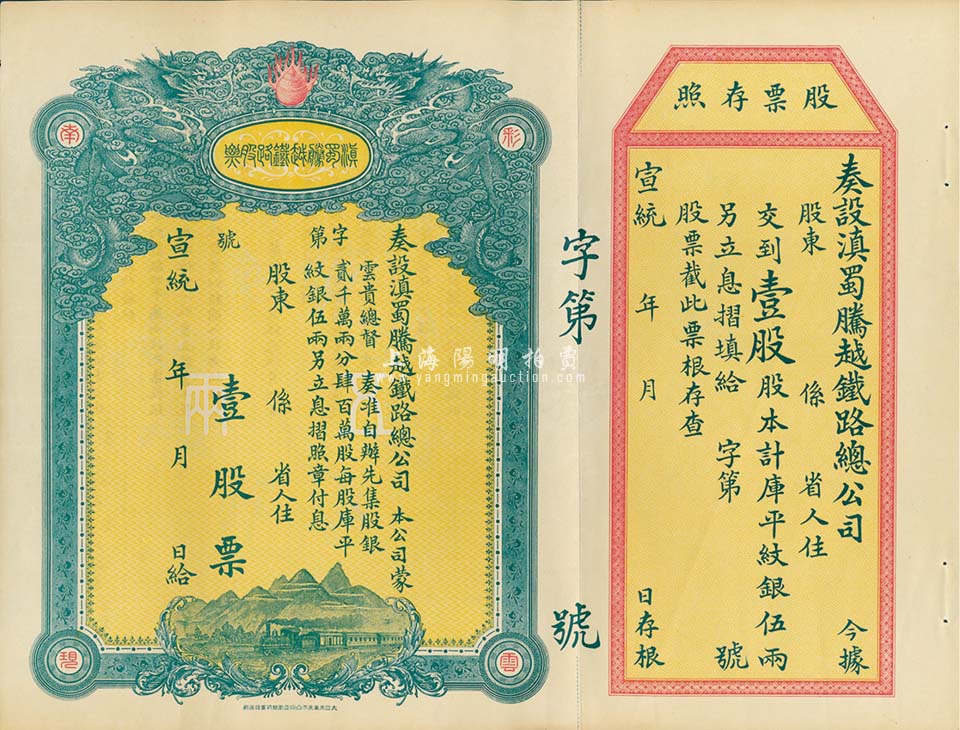 股票存照
奏設滇蜀騰越鐵路總公司 今據
股東 係 省人住
交到壹股股本計庫平紋銀伍兩
另立息摺填給 字第 號
股票截此票根存查
宣統 年 月 日存根
字第 號
滇蜀騰越鐵路股票
彩
雲
南
碧
奏設滇蜀騰越鐵路總公司 本公司蒙
雲貴總督 奏准自辦先集股銀
貳千萬兩分肆百萬股每股庫平
紋銀伍兩另立息摺照章付息
字第 號
股東 係 省人住
壹股票
宣統 年 月 日給
伍兩
上海陽明拍賣
www.yangmingauction.com